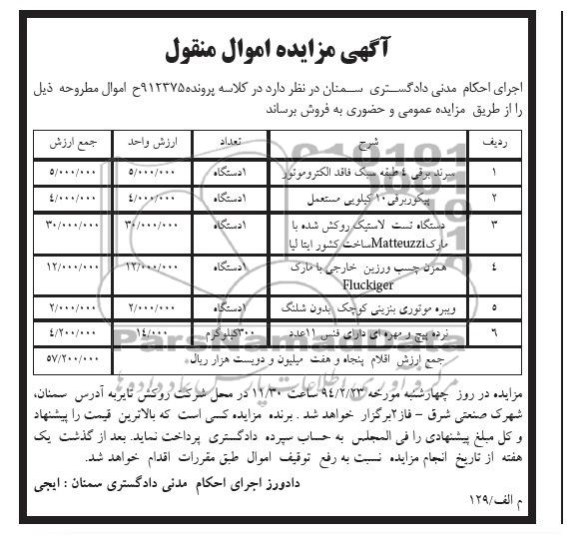 آگهی مزایده اموال منقول
اجرای احکام مدنی دادگستری سمنان در نظر دارد در کلاسه پرونده۹۱۲۳۷۵ح اموال مطروحه ذیل
را از طریق مزایده عمومی و حضوری به فروش برساند
ردیف شرح تعداد ارزش واحد جمع ارزش
۱ سرند برقی ٤ طبقه سبک فاقد الکتروموتور ۱دستگاه ۵/۰۰۰/۰۰۰ ۵/۰۰۰/۰۰۰
۲ پیکوربرقی۱۰کیلویی مستعمل ۱دستگاه ٤/۰۰۰/۰۰۰ ٤/۰۰۰/۰۰۰
۳ دستگاه تست لاستیک روکش شده با ۱دستگاه ۳۰/۰۰۰/۰۰۰ ۳۰/۰۰۰/۰۰۰
مارکMatteuzziساخت کشور ایتا لیا
٤ همزن چسب ورزین خارجی با مارک ۱دستگاه ۱۲/۰۰۰/۰۰۰ ۱۲/۰۰۰/۰۰۰
Fluckiger
۵ ویبره موتوری بنزینی کوچک بدون شلنگ ۱دستگاه ۲/۰۰۰/۰۰۰ ۲/۰۰۰/۰۰۰
۶ نرده پیچ و مهره ای دارای فنس ۱۱عدد ۳۰۰کیلوگرم ۱٤/۰۰۰ ٤/۲۰۰/۰۰۰
جمع ارزش اقلام پنجاه و هفت میلیون و دویست هزار ریال. ۵۷/۲۰۰/۰۰۰
مزایده در روز چهارشنبه مورخه ۹٤/۲/۲۳ ساعت ۱۱/۳۰ در محل شرکت روکش تایربه آدرس سمنان،
شهرک صنعتی شرق – فاز۲برگزار خواهد شد . برنده مزایده کسی است که بالاترین قیمت را پیشنهاد
و کل مبلغ پیشنهادی را فی المجلس به حساب سپرده دادگستری پرداخت نماید. بعد از گذشت یک
هفته از تاریخ انجام مزایده نسبت به رفع توقیف اموال طبق مقررات اقدام خواهد شد.
دادورز اجرای احکام مدنی دادگستری سمنان : ایجی
م الف/۱۲۹